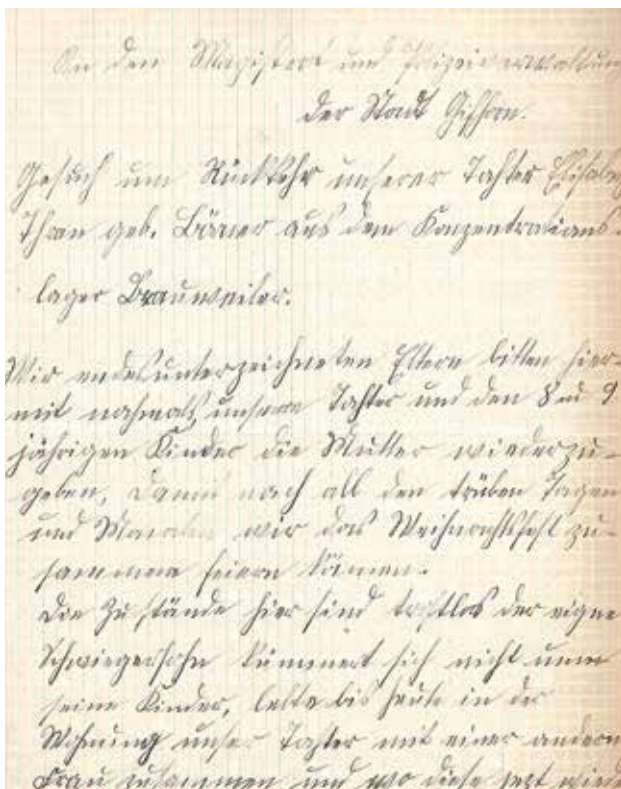 An den Magistrat und Polizeiverwaltung
der Stadt Gifhorn.
Gesuch um Rückkehr unserer Tochter Elisabeth
Thon geb. aus dem Konzentrations-
lager Brauweiler.
Wir endesunterzeichneten Eltern bitten hier-
mit nochmals, unsere Tochter und den 8 u 9
jährigen Kinder die Mutter wiederzu-
geben, damit nach all den trüben Tagen
und wir das Weihnachtsfest zu-
sammen feiern können.
Die Zustände hier sind trostlos der eigne
Schwiegersohn kümmert sich nicht umm
seine Kinder, lebte bis heute in der
Wohnung unser Tochter mit einer andern
Frau zusammen und wo diese jezt wied